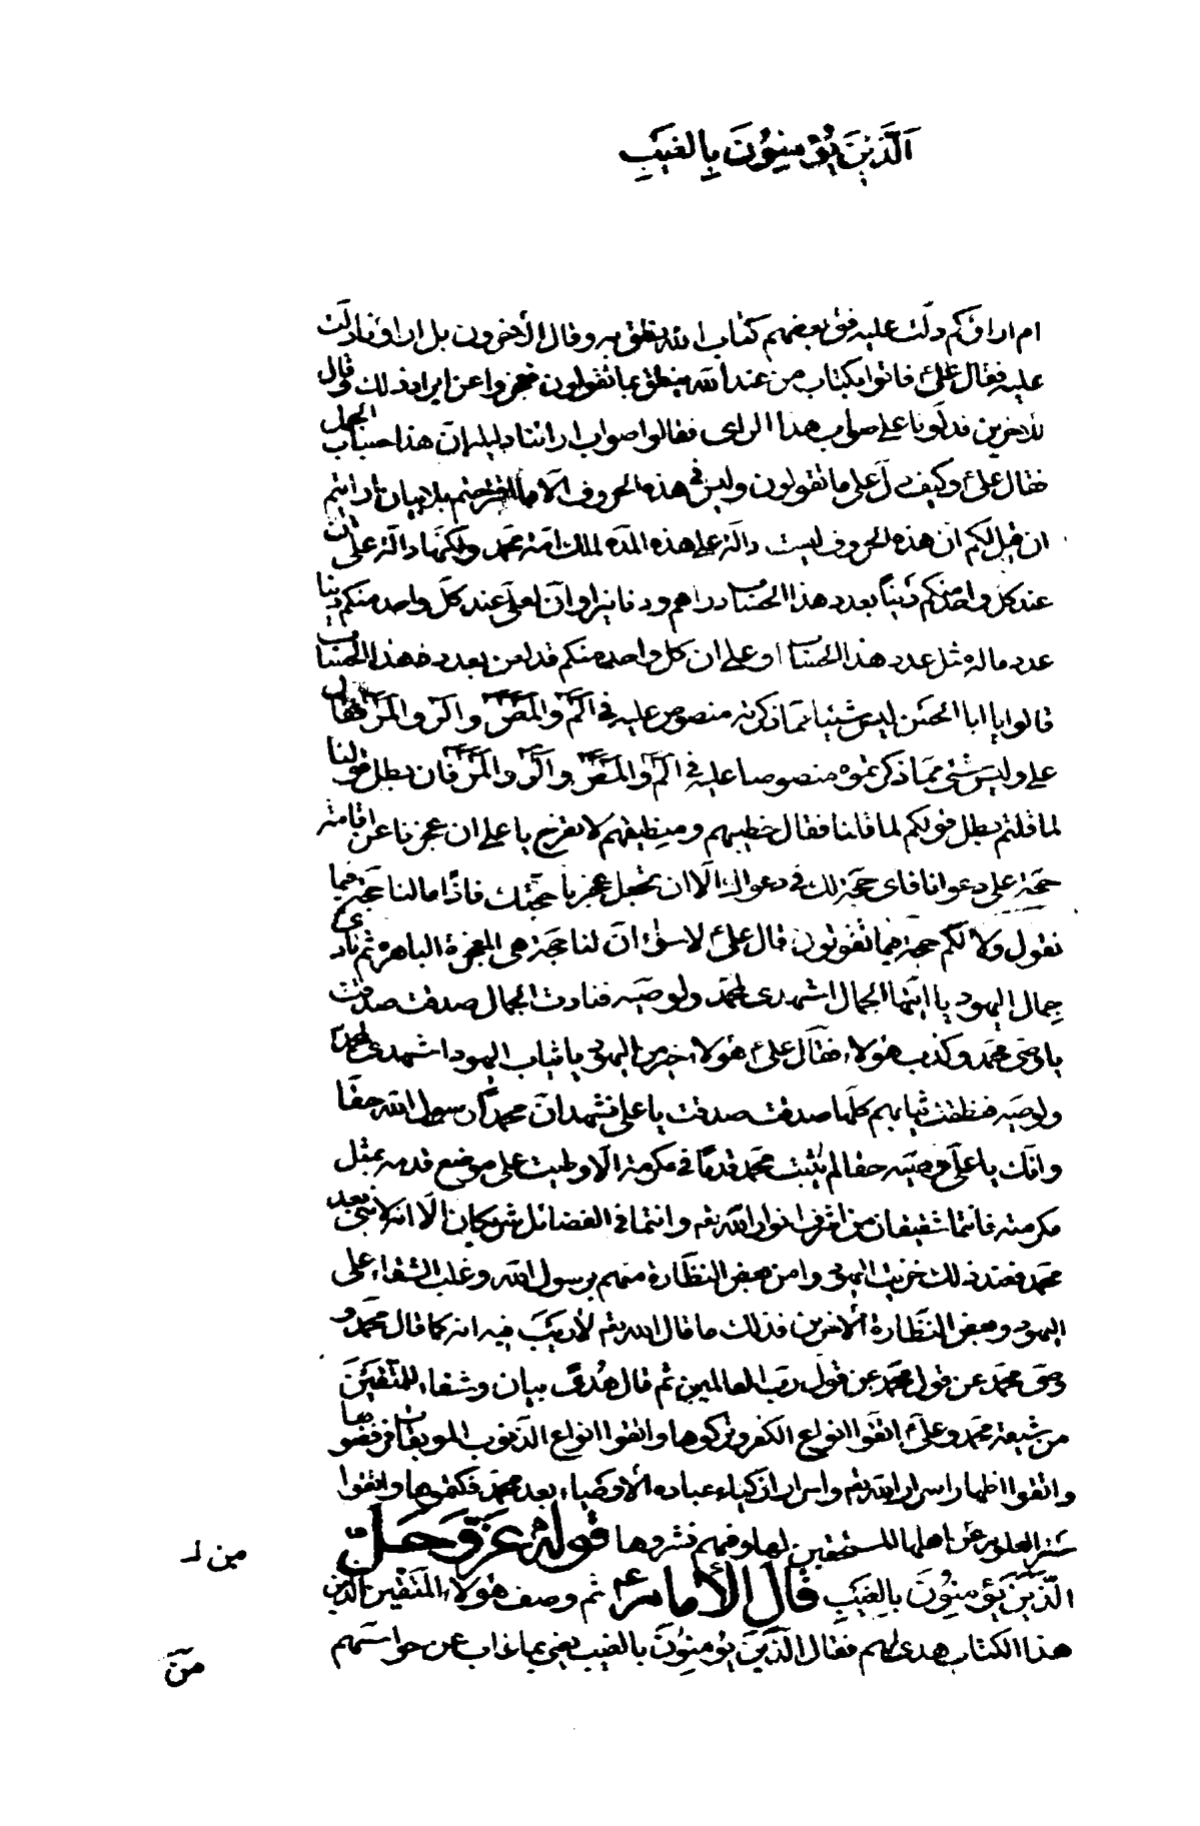 اَلَّذِينَ يُؤْمِنُونَ بِالْغَيْبِ
ام اراؤكم دلّت عليه فقال بعضهم كتاب الله نطق به وقال الآخرون بل اراؤنا دلّت
عليه فقال عليّ فاتوا بكتاب من عند الله ينطق بما تقولون فعجزوا عن ايراد ذلك وقال
للآخرين فدلّونا على صواب هذا الراى فقالوا صواب راينا دليله ان هذا حساب الجمل
فقال عليّ وكيف دلّ على ما تقولون وليس فى هذه الحروف الّا ما اقترحتم بلا بيان ارايتم
ان قيل لكم ان هذه الحروف ليست دالّة على هذه المدّة لملك امّة محمّد ولكنّها دالّة على ان
عند كل واحد منكم دَيْناً بعدد هذا الحساب دراهم ودنانير او انّ لعلىّ عند كلّ واحد منكم دينا
عدد ماله مثل عدد هذا الحساب او على ان كل واحد منكم قد لعن بعدد هذا الحساب
قالوا يا ابا الحسَن ليس شيئا ممّا ذكرته منصوص عليه فى الٓمٓ والٓمٓصٓ والٓرٰ والٓمٓرٰ فقال
على وليسَ شئ ممّا ذكرتموه منصوصا عليه فى الٓمٓ والٓمٓصٓ والٓرٰ والٓمٓرٰ فان بطل قولنا
لما قلتم بطل قولكم لما قلنا فقال خطيبهم ومنطيقهم لا تفرح يا على ان عجزنا عن اقامة
حجّة على دعوانا فاى حجّة لك فى دعواك الّا ان تجعل عجزنا حجّتك فاذًا ما لنا حجّة فيما
نقول ولا لكم حجّة فيما تقولون قال عليّ لا سواء انّ لنا حجّة هى المعجزة الباهرة ثم نادى
جمال اليهود يا ايّتها الجمال اشهدى لمحمّد ولوصيّه فنادت الجمال صدقت صدقت
يا وصىّ محمّد وكذب هؤلاء فقال عليّ هؤلاء خير من اليهود يا ثياب اليهود اشهدى لمحمّد
ولوصيّه فنطقت ثيابهم كلّها صدقت صدقت يا على نشهد انّ محمّدًا رسول الله حقّا
وانّك يا علىّ وصيّه حقا لم يثبت محمّد قدمًا فى مكرمة الّا وطيت على موضع قدمه بمثل
مكرمته فانتما شقيقان من اشرف انوار الله تعم وانتما فى الفضائل شريكان الّا انّه لا نبىّ بعد
محمّد فعند ذلك خزيت اليهود وامن بعض النظّارة منهم برسول الله وغلب الشقاء على
اليهود وبعض النظّارة الآخرين فذلك ما قال الله تعم لَا رَيْبَ فيه انه كما قال محمّد و
وصىّ محمّد عن قول محمّد عن قول ربّ العالمين ثم قال هُدًى بيان وشفاء لِلْمُتَّقِينَ
من شيعة محمّد وعلىّ اتّقوا انواع الكفر فتركوها واتّقوا انواع الذنوب الموبقات فرفضوها
واتّقوا اظهار اسرار الله تعم واسرار ازكياء عباده الاوصياء بعد محمّد فكتموها واتّقوا
ستر العلوم عن اهلها المستحقّين لها وفيهم نشروها قَوْلُهُ عَزَّ وَجَلَّ
الَّذِينَ يُؤْمِنُونَ بِالْغَيْبِ قَالَ الْاِمَامُ ثم وصف هؤلاء المتّقين الّذين
هذا الكتاب هدى لهم فقال الَّذِينَ يُؤْمِنُونَ بالغيب يعنى بما غاب عن حواسّهم